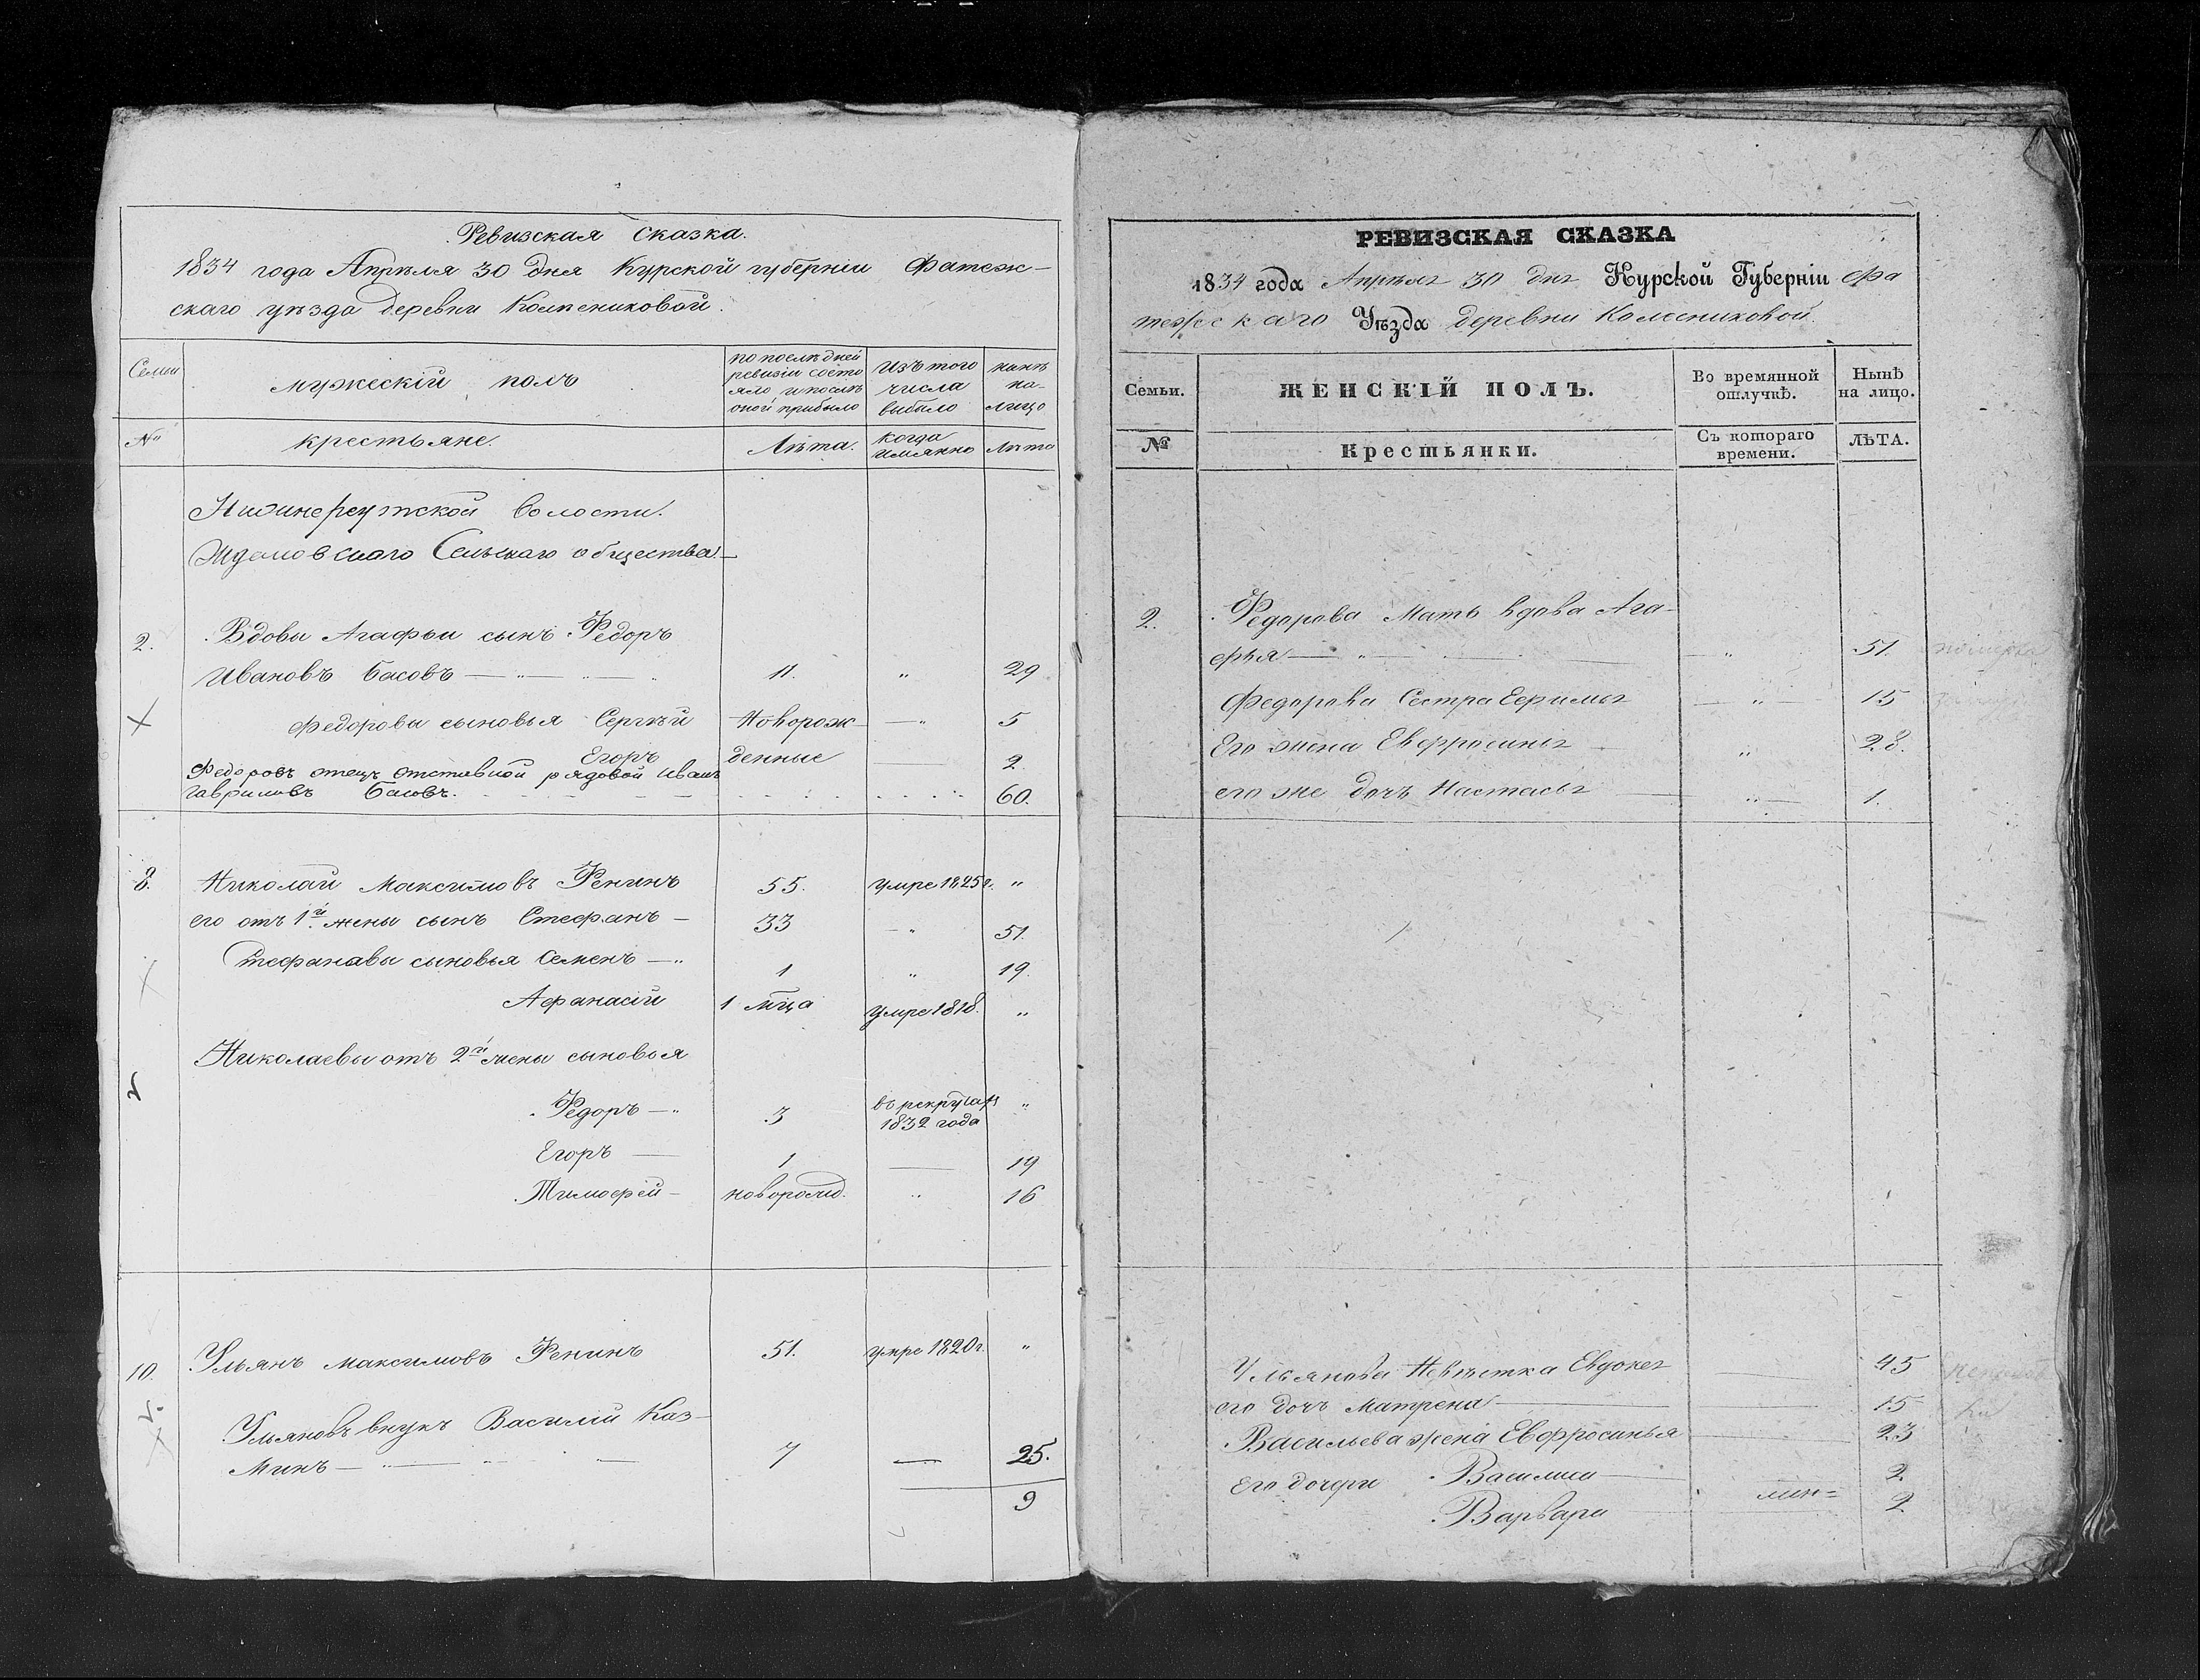 Ревизская сказка.
1834 года Апрѣля 30 дня Курской губерніи Фатеж-
скаго уѣзда деревни Колесниковой.
Семьи
мужескій полъ
по послѣдней ревизіи состо яло и послѣ оной прибыло
Изъ того числа выбыло
нынѣ на-лицо
№
крестьяне.
Лѣта.
когда имянно
Лѣта
волости.
Сельскаго общества.
2. Вдовы Агафьи сынъ Федоръ
Ивановъ Басовъ — " — 11. " 29
Федоровы сыновья Сергѣй Новорож — " 5
Егоръ денные — 2
Федоровъ отецъ отставной рядовой Иванъ
Гавриловъ Басовъ. 60.
8. Николай Максимовъ Ренинъ 55. умре 1825 г. "
его отъ 1й жены сынъ Стефанъ — 33 — " 51.
Стефанавы сыновья Семенъ — " 1 " 19.
Афанасій 1 мца умре 1818. "
Николаевы отъ 2й жены сыновья
Федоръ — " 3 въ рекрутах "
1832 года
Егоръ — 1 — 19
Тимофей — новорожд. " 16
10. Ульянъ Максимовъ Ренинъ 51. умре 1820 г. "
Ульяновъ внукъ Василій Каз-
минъ — " — 7 — 25.
9
РЕВИЗСКАЯ СКАЗКА
1834 года Апрѣля 30 дня Курской Губерніи Фа
тежскаго Уѣзда деревни Колесниковой.
Семьи.
ЖЕНСКІЙ ПОЛЪ.
Во времянной отлучкѣ.
Нынѣ на лицо.
№
Крестьянки.
Съ котораго времени.
ЛѢТА.
2. Федорова Мать вдова Ага-
фья — " — " 51.
Федорова Сестра Ефимья — " — 15
Его жена Евфросинья " 28.
его же дочь Настасья — " — 1.
Ульянова Невѣстка Евдокея — 45
его дочь Матрена — 15
Васильева жена Евфросинья — 23
Его дочери Василиса — 2.
Варвара 2